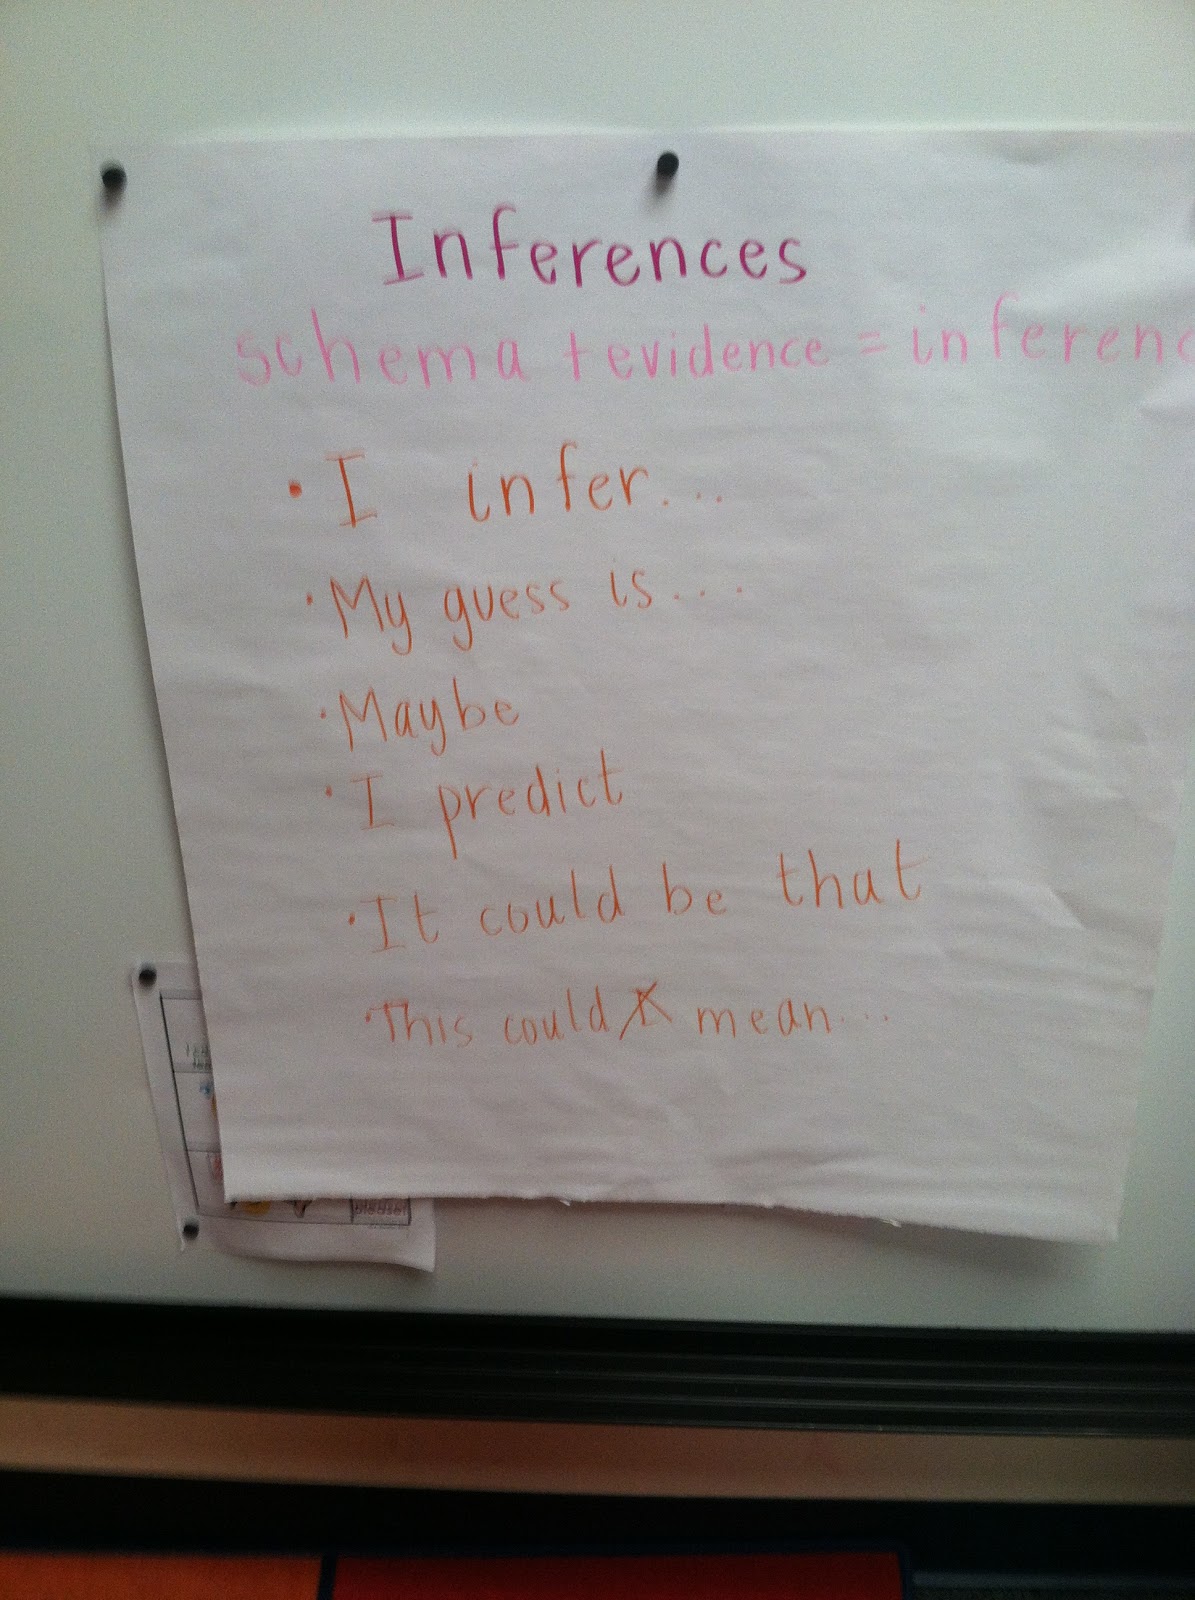 Inferences
schema + evidence = inferenc
• I infer...
• My guess is...
• Maybe
• I predict
• It could be that
• This could mean...
please!